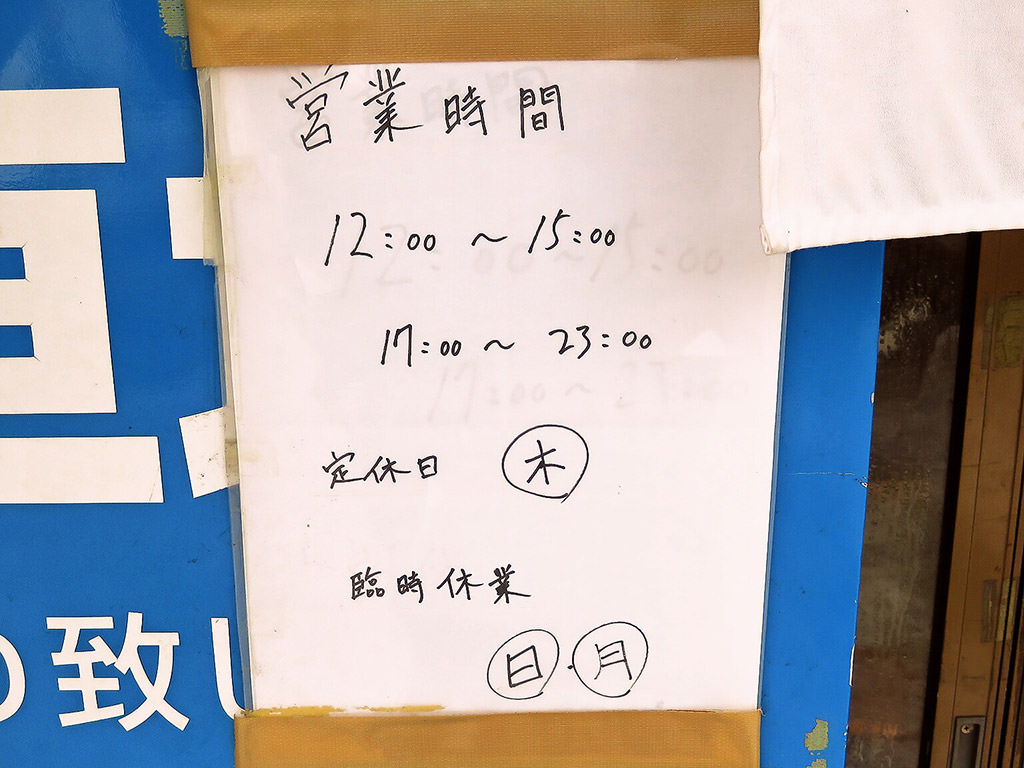 営業時間
12:00 ～ 15:00
17:00 ～ 23:00
定休日 木
臨時休業
日・月
の致し